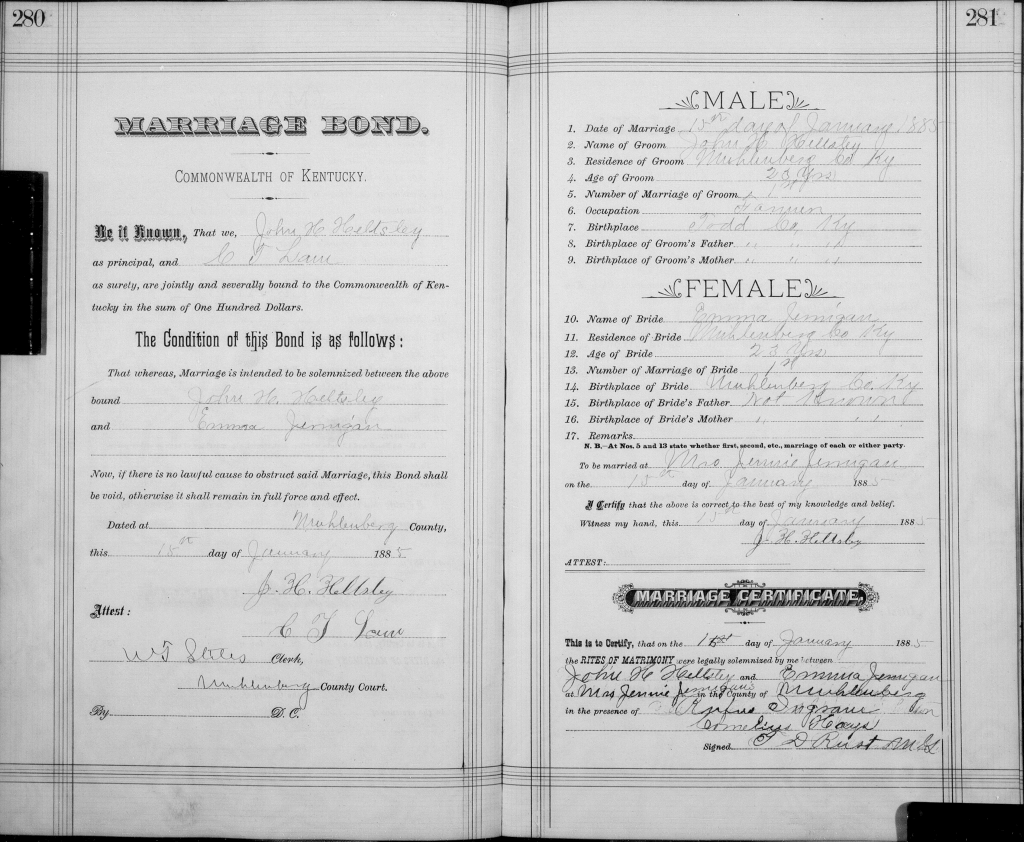 280
MARRIAGE BOND.
COMMONWEALTH OF KENTUCKY.
Be it Known, That we, John H Heltsley
as principal, and C T
as surety, are jointly and severally bound to the Commonwealth of Ken-
tucky in the sum of One Hundred Dollars.
The Condition of this Bond is as follows:
That whereas, Marriage is intended to be solemnized between the above
bound John H. Heltsley
and Emma Jernigan
Now, if there is no lawful cause to obstruct said Marriage, this Bond shall
be void, otherwise it shall remain in full force and effect.
Dated at Muhlenberg County,
this day of January 1885
J. H. Heltsley
Attest:
C T
Clerk,
Muhlenberg County Court.
By D. C.
281
MALE
1. Date of Marriage 15th day of January 1885
2. Name of Groom John H Heltsley
3. Residence of Groom Muhlenberg Co Ky
4. Age of Groom 23 Yrs
5. Number of Marriage of Groom 1st
6. Occupation Farmer
7. Birthplace Todd Co, Ky
8. Birthplace of Groom's Father " " "
9. Birthplace of Groom's Mother " " "
FEMALE
10. Name of Bride Emma Jernigan
11. Residence of Bride Muhlenberg Co Ky
12. Age of Bride 23 Yrs
13. Number of Marriage of Bride 1st
14. Birthplace of Bride Muhlenberg Co. Ky
15. Birthplace of Bride's Father Not Known
16. Birthplace of Bride's Mother " " "
17. Remarks.
N. B.—At Nos. 5 and 13 state whether first, second, etc., marriage of each or either party.
To be married at Mrs Jennie Jernigan
on the 15th day of January 1885
I Certify that the above is correct to the best of my knowledge and belief.
Witness my hand, this 15th day of January 1885
J. H. Heltsley
ATTEST:
MARRIAGE CERTIFICATE,
This is to Certify, that on the day of January 1885
the RITES OF MATRIMONY were legally solemnized by me between
John H Heltsley and Emma Jernigan
at Mrs Jennie Jernigans in the County of Muhlenberg
in the presence of Rufus Ingram
Cornelius Hays
Signed. T D Rust